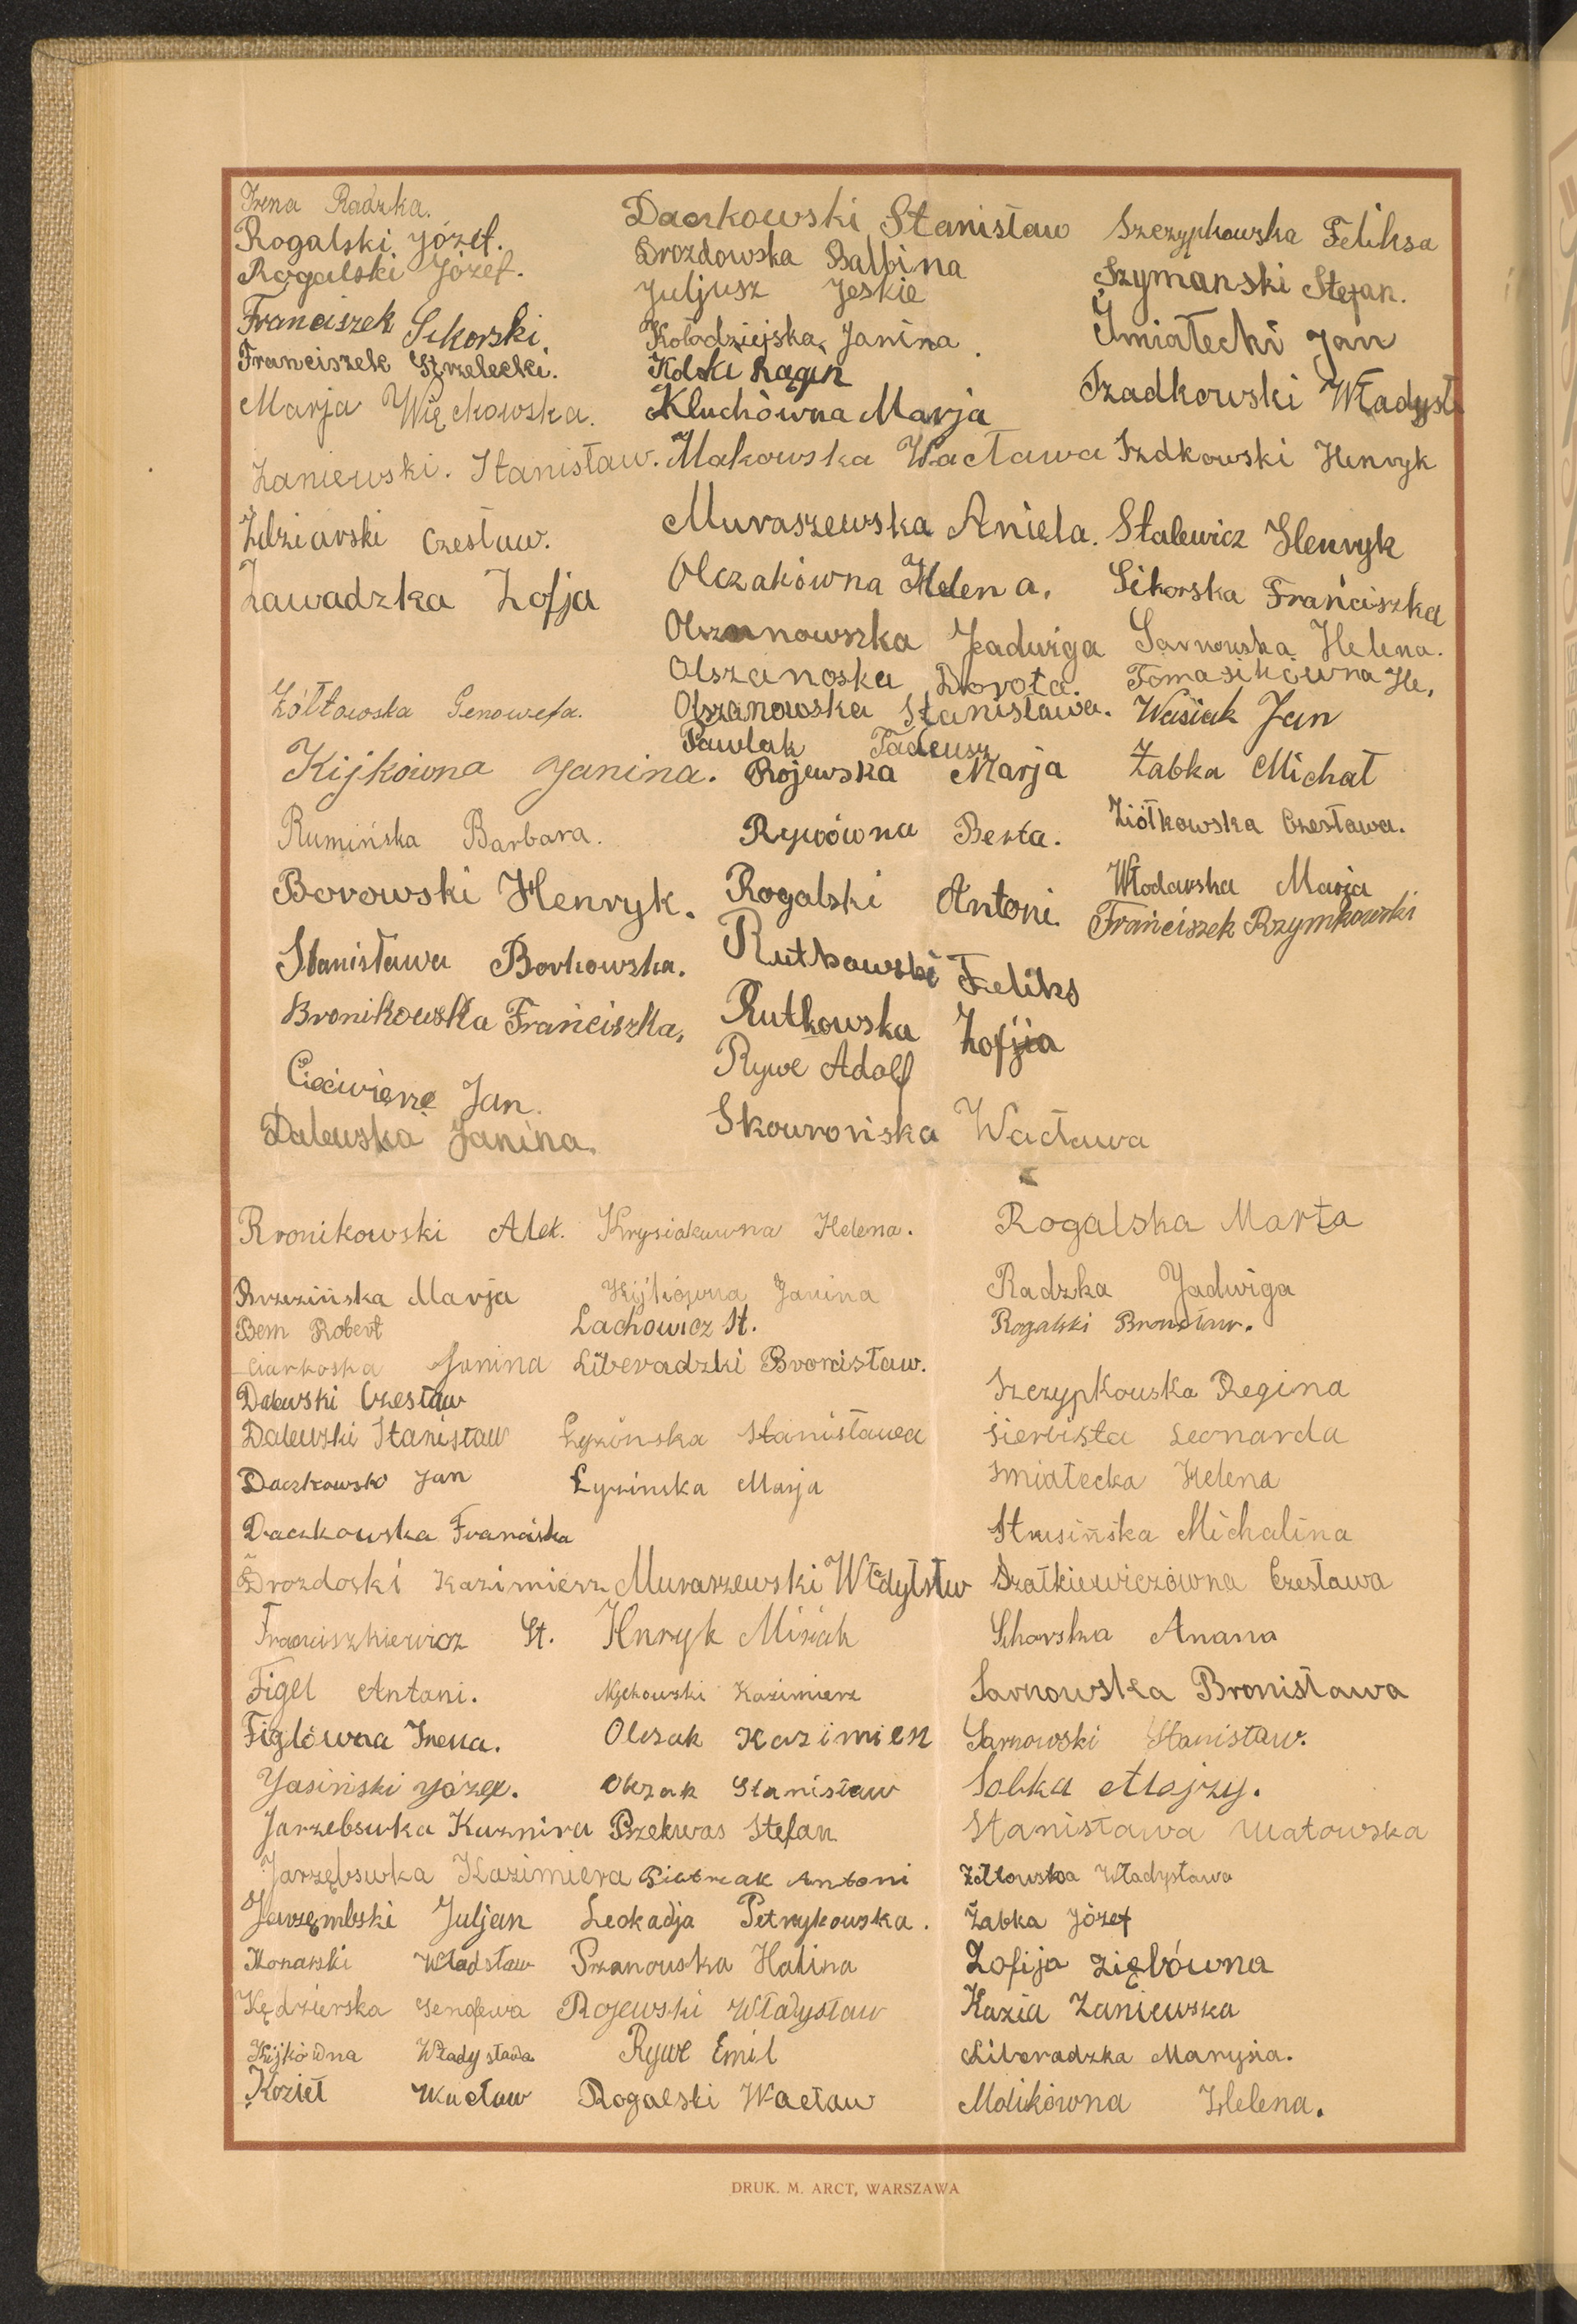 Irena Radzka.
Rogalski Józef.
Rogalski Józef.
Franciszek Sikorski.
Franciszek Strzelecki.
Marja Więckowska.
Zaniewski. Stanisław.
Zdziarski Czesław.
Zawadzka Zofja
Żółtowska Genowefa.
Kijkówna Janina.
Rumińska Barbara.
Borowski Henryk.
Stanisława Borkowska.
Bronikowska Franciszka.
Jan.
Dalewska Janina.
Daczkowski Stanisław
Drozdowska Balbina
Juljusz Jeskie
Kołodziejska Janina
Kolski
Kluchówna Marja
Makowska Wacława
Muraszewska Aniela.
Olczakówna Helena.
Jadwiga
Olszanoska Dorota.
Olszanowska Stanisława.
Pawlak Tadeusz
Rojewska Marja
Rywówna Berta.
Rogalski Antoni.
Rutkowski Feliks
Rutkowska Zofjia
Rywe Adolf
Skowrońska Wacława
Szczypkowska Feliksa
Szymanski Stefan.
Śmiałecki Jan
Szadkowski Władysł
Szdkowski Henryk
Stalewicz Henryk
Sikorska Franciszka
Sarnowska Helena.
Tomasikówna He.
Wasiak Jan
Żabka Michał
Ziółkowska Czesława.
Włodarska Marja
Franciszek Rzymkowski
Bronikowski Alek.
Brzezińska Marja
Bem Robert
Ciarkoska Janina
Dalewski Czesław
Dalewski Stanisław
Daczkowski Jan
Daczkowska Franciska
Drozdoski Kazimierz
Franciszkiewicz St.
Figel Antoni.
Figlówna Irena.
Jasiński Józef.
Jarzebswka Kazmira
Jarzębswka Kazimiera
Jarzembski Juljan
Konarski Władsław
Kędzierska Genofewa
Kijkówna Władysława
Kozieł Wacław
Krysiakuwna Helena.
Kijkówna Janina
Lachowicz St.
Liberadzki Bronisław.
Łyzińska Stanisława
Łyzinska Marja
Muraszewski
Hnryk Misiak
Kazimierz
Olczak Kazimierz
Olczak Stanisław
Przekwas Stefan
Pietrzak Antoni
Leokadja Petrykowska.
Przanowska Halina
Rojewski Władysław
Rywe Emil
Rogalski Wacław
Rogalska Marta
Radzka Jadwiga
Rogalski Bronsław.
Szczypkowska Regina
Sierbista Leonarda
Smiałecka Helena
Strusińska Michalina
Szałkiewiczówna Czesława
Sikorska Anana
Sarnowska Bronisława
Sarnowski Stanisław.
Sobka Alojzy.
Stanisława Watowska
Żółtowska Władysława
Żabka Józef
Zofija Ziębówna
Kazia Zaniewska
Liberadzka Marysia.
Molikówna Helena.
DRUK. M. ARCT, WARSZAWA